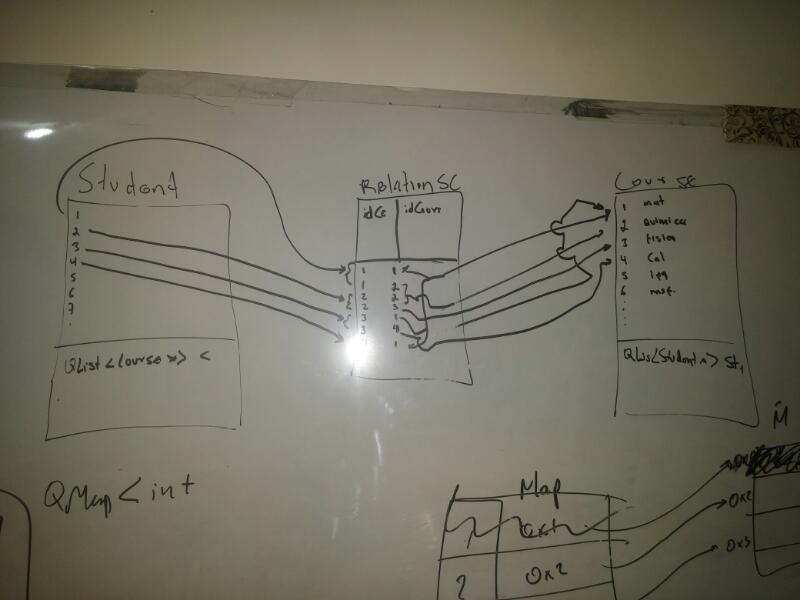 Student
1
2
3
4
5
6
7
.
QList<Course*> <
RelationSC
idCe idCour
1 1
1 2
2 2
2 3
3 1
3 4
1
Course
1 mat
2 Quimica
3 fisica
4 Cal
5 leg
6 mat.
.
.
.
QLis<Student*> St,
QMap<int
Map
2 0x2
M
0x2
0x3